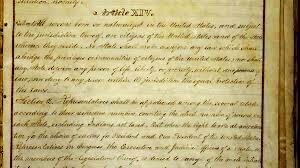 Article XIV.
born or naturalized in the United States, and subject
to the jurisdiction thereof, are citizens of the United States and of the State
wherein they reside. No State shall make or enforce any law which shall
abridge the privileges or immunities of citizens of the United States; nor shall
any State deprive any person of life, liberty, or property, without due process of
law, nor deny to any person within its jurisdiction the equal protection of
the laws.
Section 2. Representatives shall be apportioned among the several States
according to their respective numbers, counting the whole number of persons in
each State, excluding Indians not taxed. But when the right to vote at any
for the choice of electors for President and Vice President of the United States,
Representatives in Congress, the Executive and Judicial officers of a State, or
the members of the Legislature thereof, is denied to any of the male